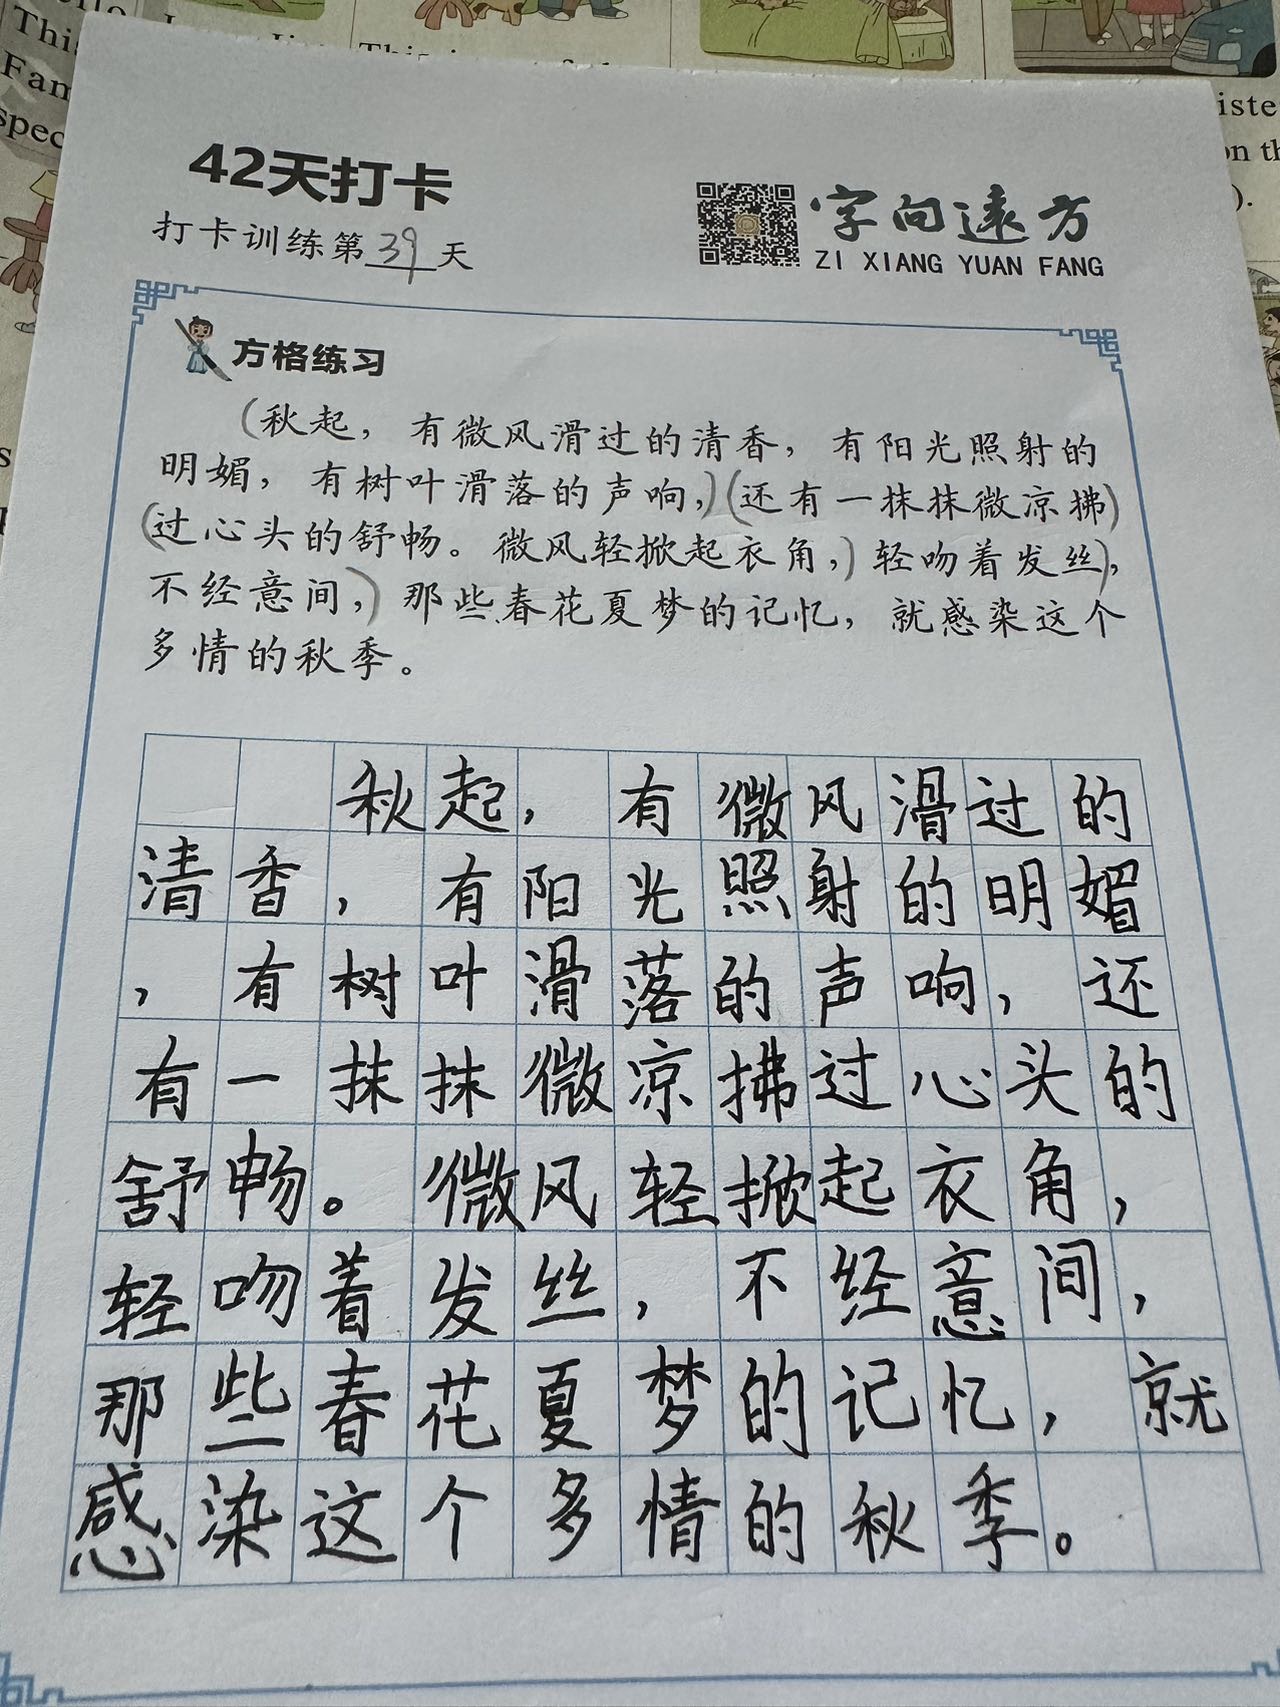 This
Fam
spec
iste
on th
).
42天打卡
打卡训练第39天
字向远方
ZI XIANG YUAN FANG
方格练习
(秋起，有微风滑过的清香，有阳光照射的
明媚，有树叶滑落的声响，)(还有一抹抹微凉拂)
(过心头的舒畅。微风轻掀起衣角，)轻吻着发丝)，
不经意间，)那些春花夏梦的记忆，就感染这个
多情的秋季。
秋起，有微风滑过的
清香，有阳光照射的明媚
，有树叶滑落的声响，还
有一抹抹微凉拂过心头的
舒畅。微风轻掀起衣角，
轻吻着发丝，不经意间，
那些春花夏梦的记忆，就
感染这个多情的秋季。